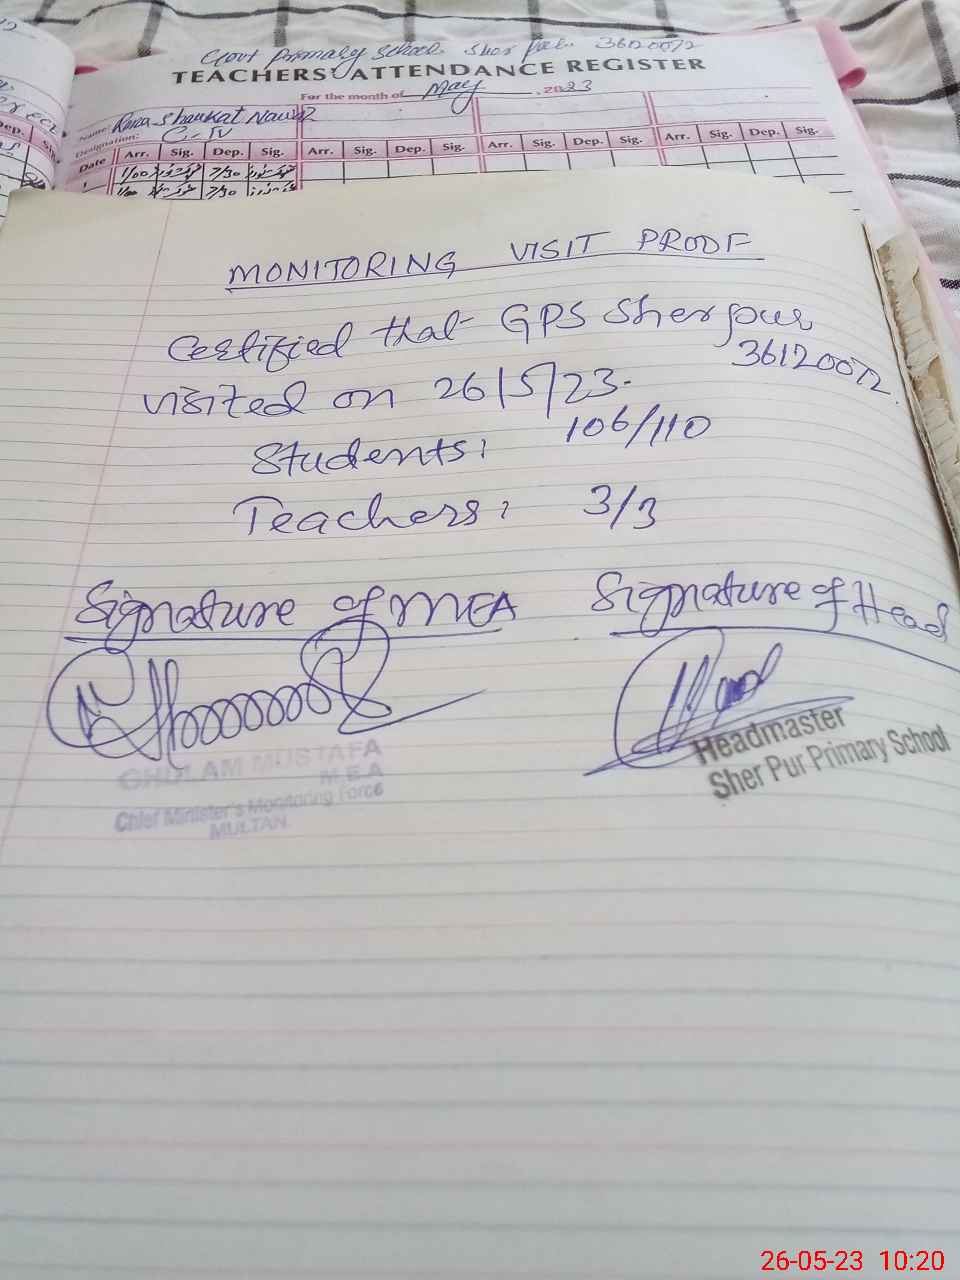 Govt Primary School Sher Pur 36120072
TEACHERS' ATTENDANCE REGISTER
For the month of May, 2023
Name: Rana Shaukat Nawaz
Designation: C-IV
Date Arr. Sig. Dep. Sig. Arr. Sig. Dep. Sig. Arr. Sig. Dep. Sig. Arr. Sig. Dep. Sig.
1 7/00 7/30
7/00 7/30
Dep.
MONITORING VISIT PROOF
Certified that GPS Sherpur
36120072
visited on 26/5/23.
Students: 106/110
Teachers: 3/3
Signature of MEA Signature of Head
GHULAM MUSTAFA
M.E.A
Chief Minister's Monitoring Force
MULTAN
Headmaster
Sher Pur Primary School
26-05-23 10:20